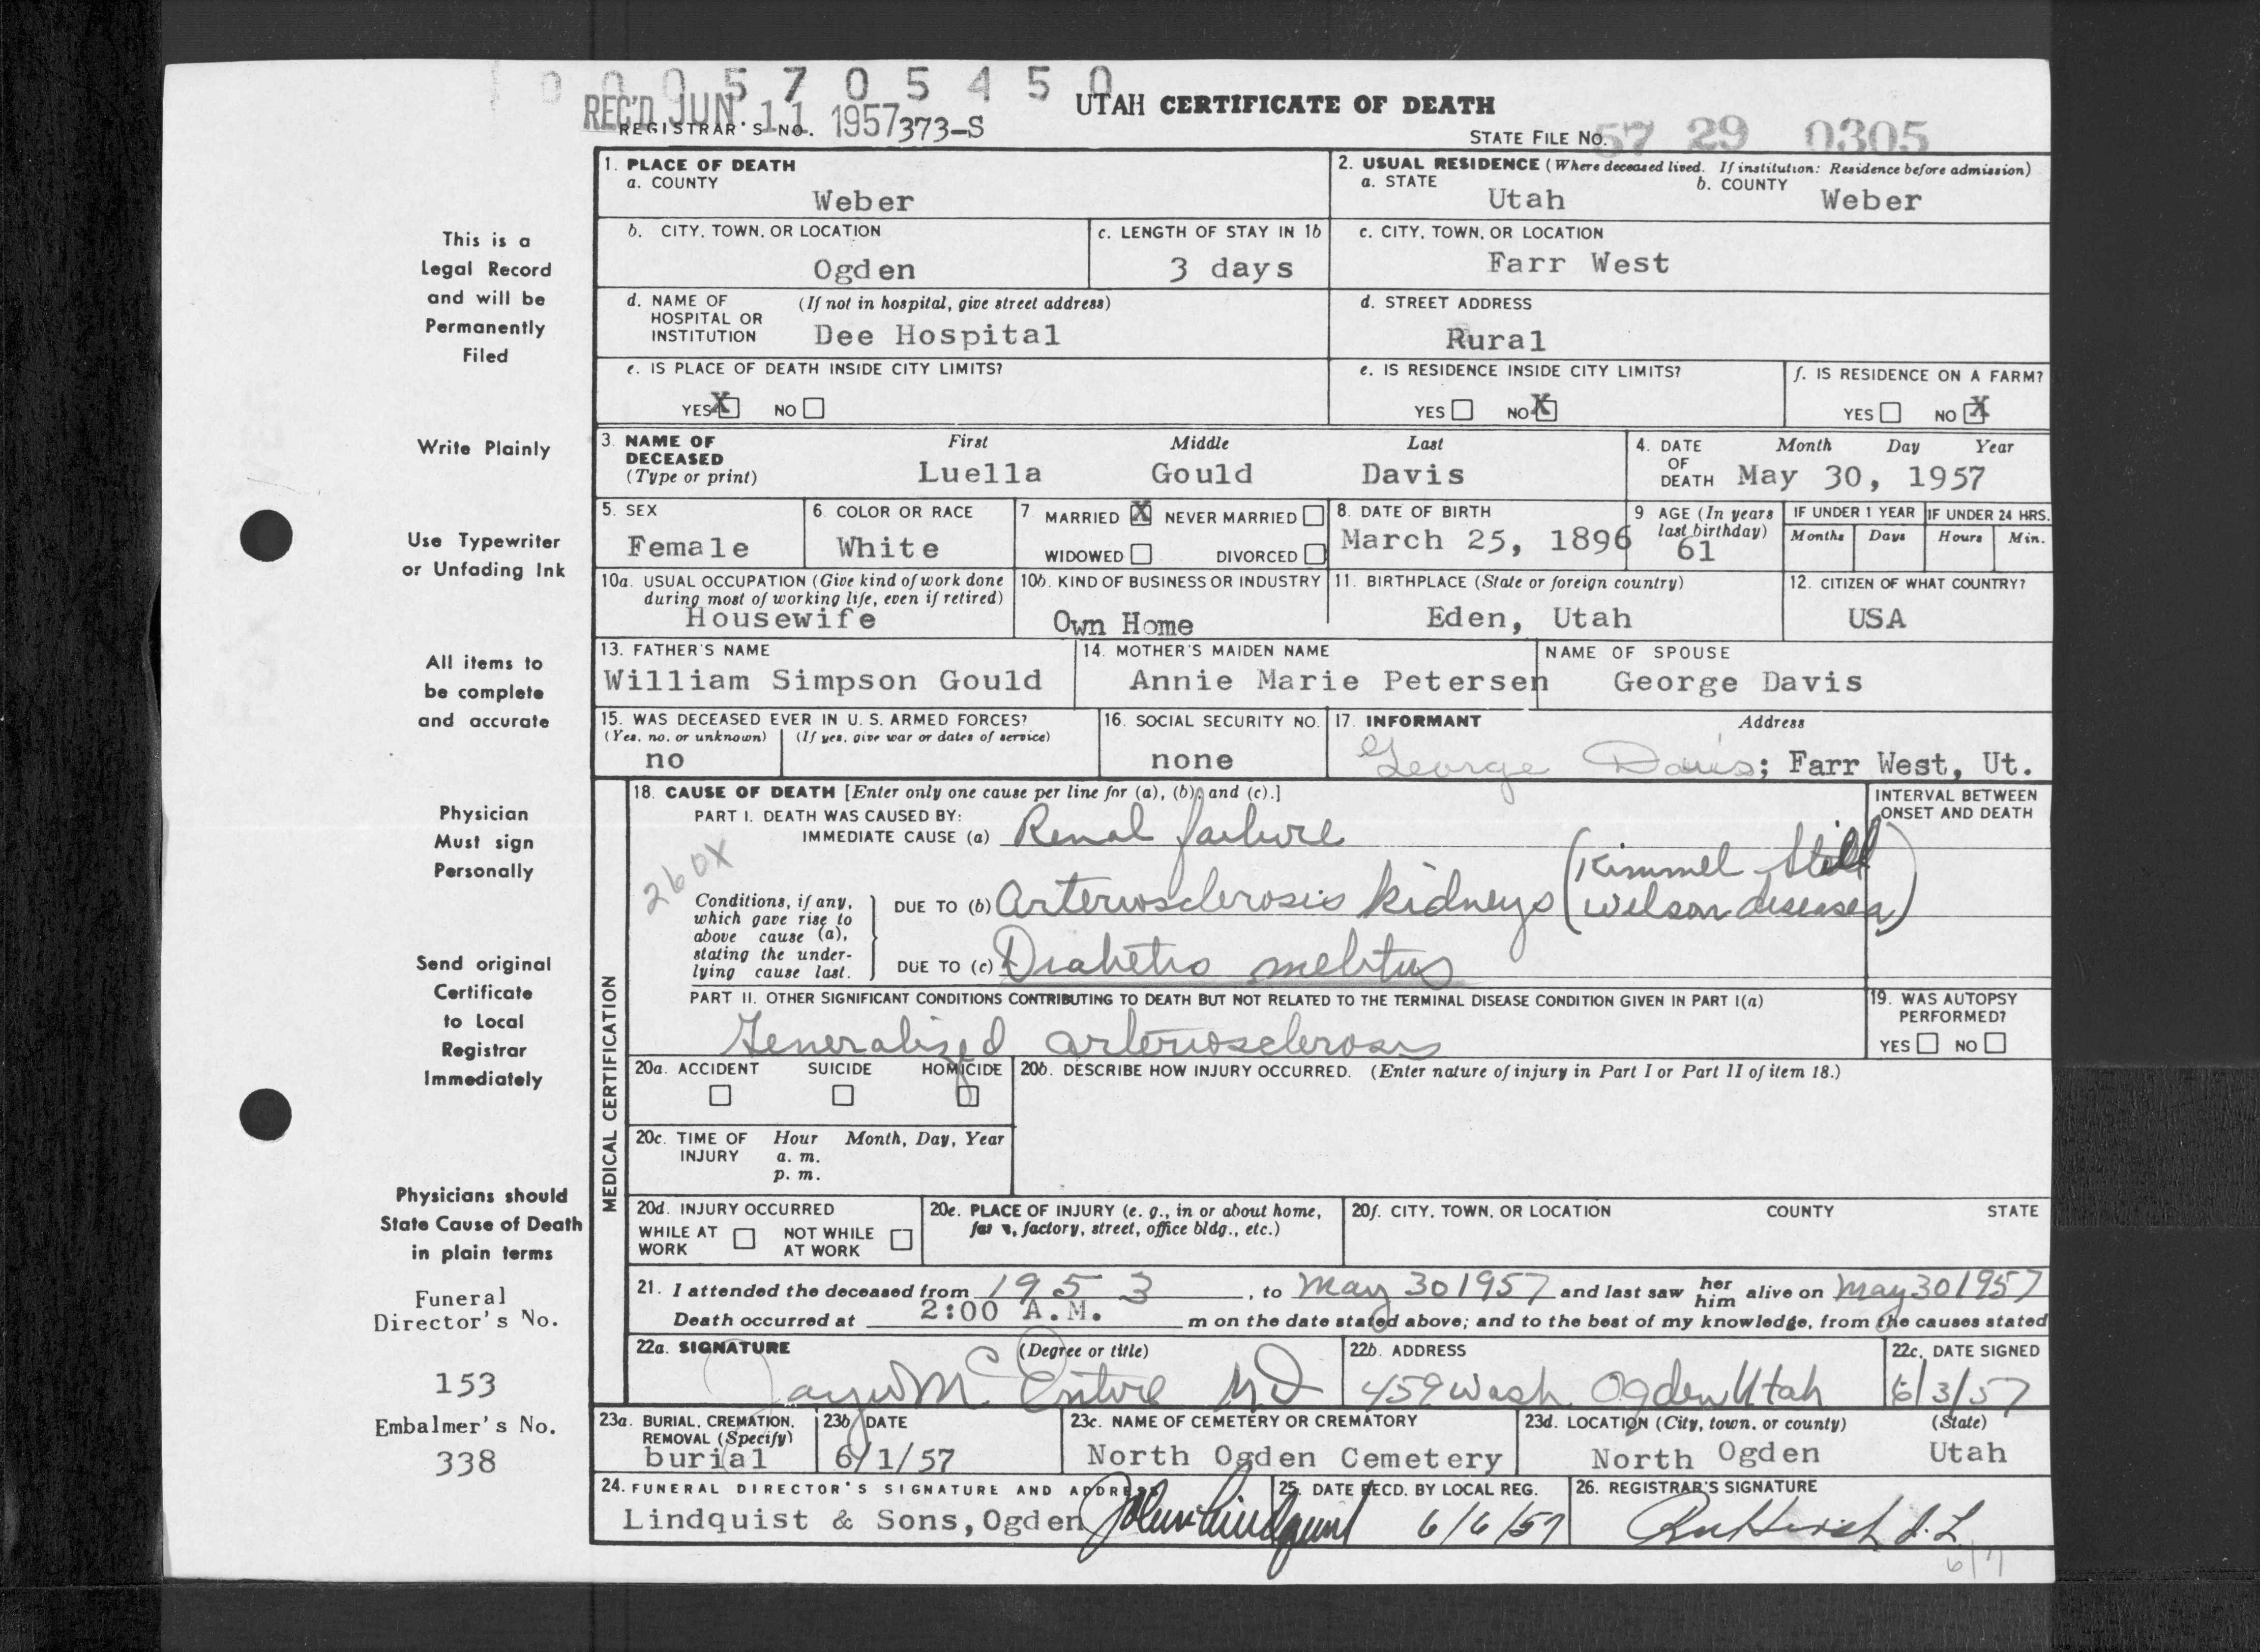 0 0 0 5 7 0 5 4 5 0
REC'D JUN 11 1957
REGISTRAR'S NO. 373-S
UTAH CERTIFICATE OF DEATH
STATE FILE NO. 57 29 0305
This is a
Legal Record
and will be
Permanently
Filed
Write Plainly
Use Typewriter
or Unfading Ink
All items to
be complete
and accurate
Physician
Must sign
Personally
Send original
Certificate
to Local
Registrar
Immediately
Physicians should
State Cause of Death
in plain terms
Funeral
Director's No.
153
Embalmer's No.
338
1. PLACE OF DEATH
a. COUNTY
Weber
2. USUAL RESIDENCE (Where deceased lived. If institution: Residence before admission)
a. STATE
Utah
b. COUNTY
Weber
b. CITY, TOWN, OR LOCATION
Ogden
c. LENGTH OF STAY IN 1b
3 days
c. CITY, TOWN, OR LOCATION
Farr West
d. NAME OF HOSPITAL OR INSTITUTION
(If not in hospital, give street address)
Dee Hospital
d. STREET ADDRESS
Rural
e. IS PLACE OF DEATH INSIDE CITY LIMITS?
YES X NO
e. IS RESIDENCE INSIDE CITY LIMITS?
YES NO X
f. IS RESIDENCE ON A FARM?
YES NO X
3. NAME OF DECEASED
(Type or print)
First Middle Last
Luella Gould Davis
4. DATE OF DEATH
Month Day Year
May 30, 1957
5. SEX
Female
6. COLOR OR RACE
White
7. MARRIED X NEVER MARRIED
WIDOWED DIVORCED
8. DATE OF BIRTH
March 25, 1896
9 AGE (In years last birthday)
61
IF UNDER 1 YEAR
Months Days
IF UNDER 24 HRS.
Hours Min.
10a. USUAL OCCUPATION (Give kind of work done during most of working life, even if retired)
Housewife
10b. KIND OF BUSINESS OR INDUSTRY
Own Home
11. BIRTHPLACE (State or foreign country)
Eden, Utah
12. CITIZEN OF WHAT COUNTRY?
USA
13. FATHER'S NAME
William Simpson Gould
14. MOTHER'S MAIDEN NAME
Annie Marie Petersen
NAME OF SPOUSE
George Davis
15. WAS DECEASED EVER IN U. S. ARMED FORCES?
(Yes, no, or unknown) (If yes, give war or dates of service)
no
16. SOCIAL SECURITY NO.
none
17. INFORMANT Address
George Davis; Farr West, Ut.
MEDICAL CERTIFICATION
18. CAUSE OF DEATH [Enter only one cause per line for (a), (b), and (c).]
INTERVAL BETWEEN ONSET AND DEATH
PART I. DEATH WAS CAUSED BY:
IMMEDIATE CAUSE (a) Renal failure
260X
Conditions, if any, which gave rise to above cause (a), stating the underlying cause last.
DUE TO (b) Arteriosclerosis kidneys (Kimmel Still Wilson disease)
DUE TO (c) Diabetis melitus
PART II. OTHER SIGNIFICANT CONDITIONS CONTRIBUTING TO DEATH BUT NOT RELATED TO THE TERMINAL DISEASE CONDITION GIVEN IN PART I(a)
Generalized arteriosclerosis
19. WAS AUTOPSY PERFORMED?
YES NO
20a. ACCIDENT SUICIDE HOMICIDE
20b. DESCRIBE HOW INJURY OCCURRED. (Enter nature of injury in Part I or Part II of item 18.)
20c. TIME OF INJURY
Hour Month, Day, Year
a. m.
p. m.
20d. INJURY OCCURRED
WHILE AT WORK NOT WHILE AT WORK
20e. PLACE OF INJURY (e. g., in or about home, farm, factory, street, office bldg., etc.)
20f. CITY, TOWN, OR LOCATION COUNTY STATE
21. I attended the deceased from 1953, to May 30 1957 and last saw her him alive on May 30 1957
Death occurred at 2:00 A.M. m on the date stated above; and to the best of my knowledge, from the causes stated
22a. SIGNATURE (Degree or title)
McEntire MD
22b. ADDRESS
459 Wash Ogden Utah
22c. DATE SIGNED
6/3/57
23a. BURIAL, CREMATION, REMOVAL (Specify)
burial
23b. DATE
6/1/57
23c. NAME OF CEMETERY OR CREMATORY
North Ogden Cemetery
23d. LOCATION (City, town, or county) (State)
North Ogden Utah
24. FUNERAL DIRECTOR'S SIGNATURE AND ADDRESS
Lindquist & Sons, Ogden John Lindquist
25. DATE RECD. BY LOCAL REG.
6/6/57
26. REGISTRAR'S SIGNATURE
6/7